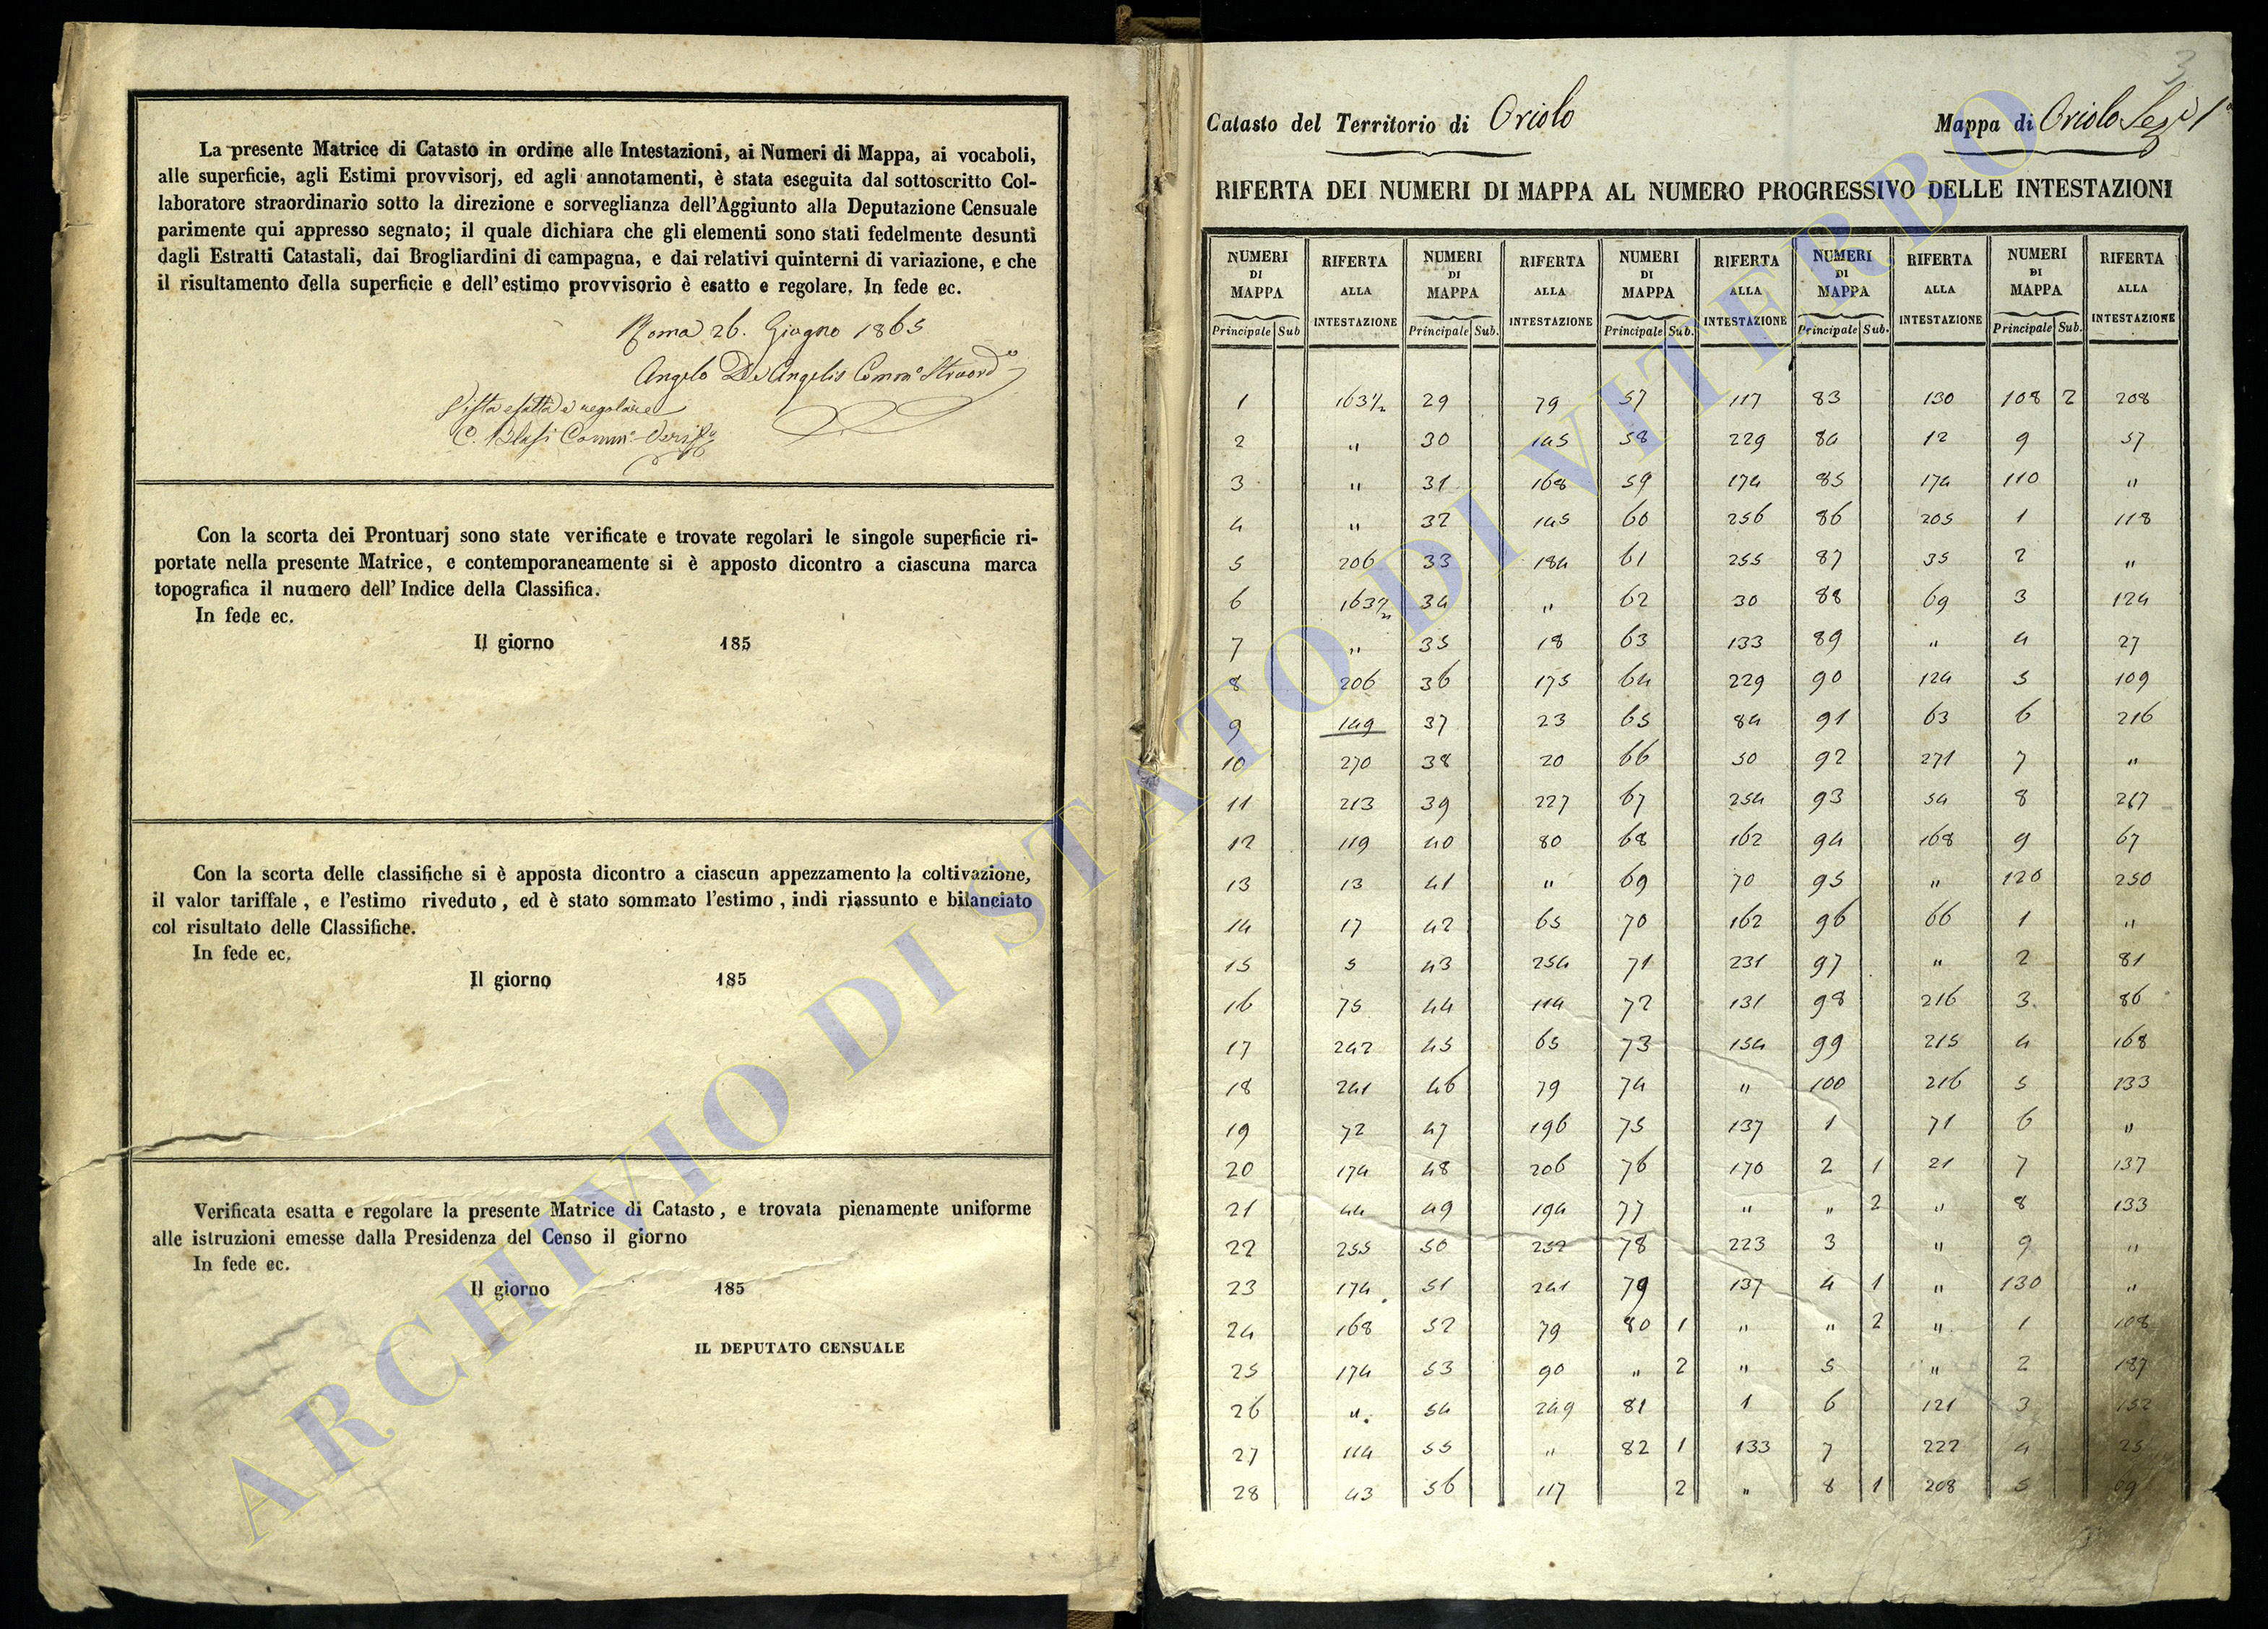 La presente Matrice di Catasto in ordine alle Intestazioni, ai Numeri di Mappa, ai vocaboli,
alle superficie, agli Estimi provvisorj, ed agli annotamenti, è stata eseguita dal sottoscritto Col-
laboratore straordinario sotto la direzione e sorveglianza dell'Aggiunto alla Deputazione Censuale
parimente qui appresso segnato; il quale dichiara che gli elementi sono stati fedelmente desunti
dagli Estratti Catastali, dai Brogliardini di campagna, e dai relativi quinterni di variazione, e che
il risultamento della superficie e dell'estimo provvisorio è esatto e regolare. In fede ec.
Roma 26. Giugno 1865
Angelo De Angelis Comm.o Straord.o
Vista esatta e regolare
C. Blasi Comm.o
Con la scorta dei Prontuarj sono state verificate e trovate regolari le singole superficie ri-
portate nella presente Matrice, e contemporaneamente si è apposto dicontro a ciascuna marca
topografica il numero dell'Indice della Classifica.
In fede ec.
Il giorno 185
Con la scorta delle classifiche si è apposta dicontro a ciascun appezzamento la coltivazione,
il valor tariffale, e l'estimo riveduto, ed è stato sommato l'estimo, indi riassunto e bilanciato
col risultato delle Classifiche.
In fede ec.
Il giorno 185
Verificata esatta e regolare la presente Matrice di Catasto, e trovata pienamente uniforme
alle istruzioni emesse dalla Presidenza del Censo il giorno
In fede ec.
Il giorno 185
IL DEPUTATO CENSUALE
3
Catasto del Territorio di Oriolo Mappa di Oriolo Sez. 1a
RIFERTA DEI NUMERI DI MAPPA AL NUMERO PROGRESSIVO DELLE INTESTAZIONI
NUMERI DI MAPPA RIFERTA ALLA INTESTAZIONE NUMERI DI MAPPA RIFERTA ALLA INTESTAZIONE NUMERI DI MAPPA RIFERTA ALLA INTESTAZIONE NUMERI DI MAPPA RIFERTA ALLA INTESTAZIONE NUMERI DI MAPPA RIFERTA ALLA INTESTAZIONE
Principale Sub Principale Sub. Principale Sub. Principale Sub. Principale Sub.
1 163½ 29 79 57 117 83 130 108 2 208
2 " 30 145 58 229 84 12 9 57
3 " 31 168 59 174 85 174 110 "
4 " 32 145 60 256 86 205 1 118
5 206 33 184 61 255 87 35 2 "
6 163½ 34 " 62 30 88 69 3 124
7 " 35 18 63 133 89 " 4 27
8 206 36 175 64 229 90 124 5 109
9 149 37 23 65 84 91 63 6 216
10 270 38 20 66 50 92 271 7 "
11 213 39 227 67 254 93 54 8 267
12 119 40 80 68 162 94 168 9 67
13 13 41 " 69 70 95 " 120 250
14 17 42 65 70 162 96 66 1 "
15 5 43 254 71 231 97 " 2 81
16 75 44 114 72 131 98 216 3 86
17 242 45 65 73 154 99 215 4 168
18 241 46 79 74 " 100 216 5 133
19 72 47 196 75 137 1 71 6 "
20 174 48 206 76 170 2 1 21 7 137
21 44 49 194 77 " " 2 " 8 133
22 255 50 252 78 223 3 " 9 "
23 174 51 241 79 137 4 1 " 130 "
24 168 52 79 80 1 " " 2 " 1 108
25 174 53 90 " 2 " 5 " 2 187
26 " 54 249 81 1 6 121 3 152
27 114 55 " 82 1 133 7 222 4 25
28 43 56 117 2 " 8 1 208 5 69
ARCHIVIO DI STATO DI VITERBO